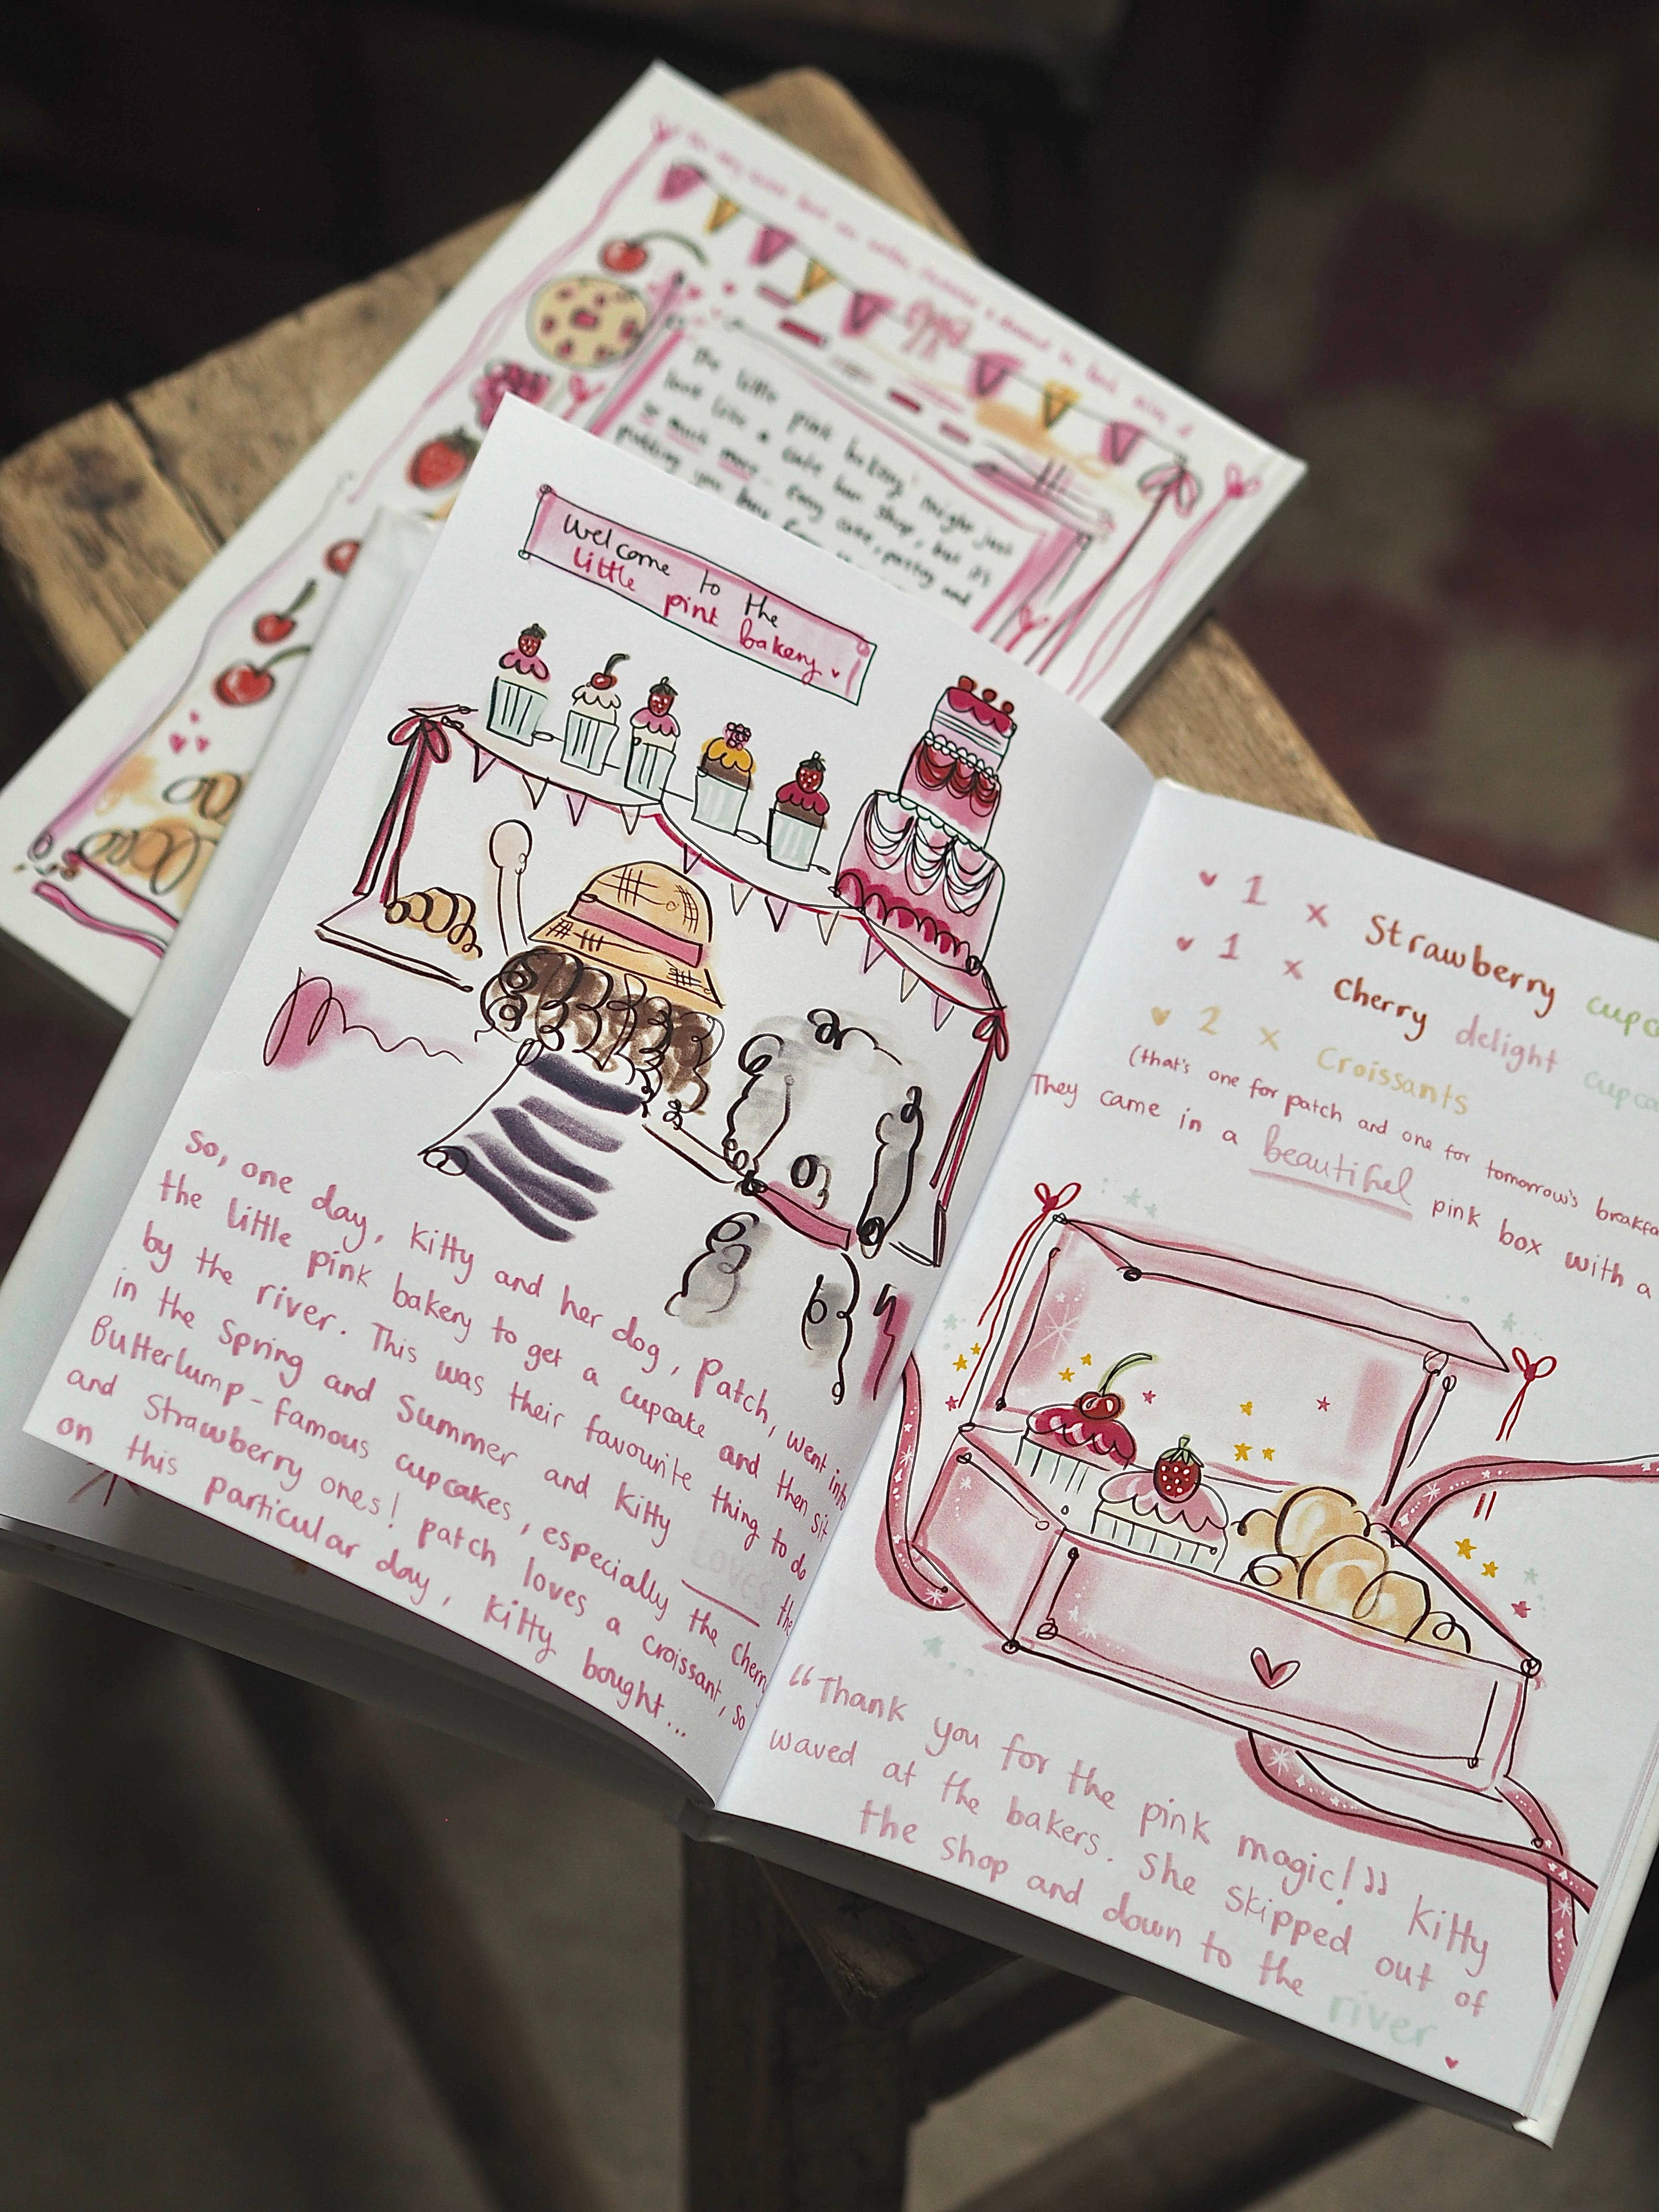 The little pink bakery might just
look like a cute bun shop, but it's
so much more - every cake, pastry and
pudding you buy
Welcome to the
little pink bakery.
So, one day, Kitty and her dog, Patch, went into
the little pink bakery to get a cupcake and then sit
by the river. This was their favourite thing to do
in the Spring and Summer and Kitty LOVES the
Butterlump-famous cupcakes, especially the Cherry
and Strawberry ones! Patch loves a croissant, so
on this particular day, Kitty bought...
1 x Strawberry
1 x Cherry delight
2 x Croissants
(that's one for patch and one for tomorrow's
They came in a beautiful pink box with a
"Thank you for the pink magic!" Kitty
waved at the bakers. She skipped out of
the shop and down to the river